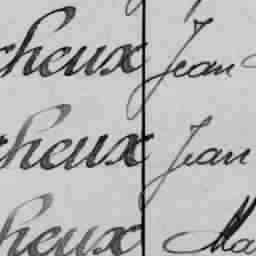 cheux Jean
cheux Jean
heux Ma